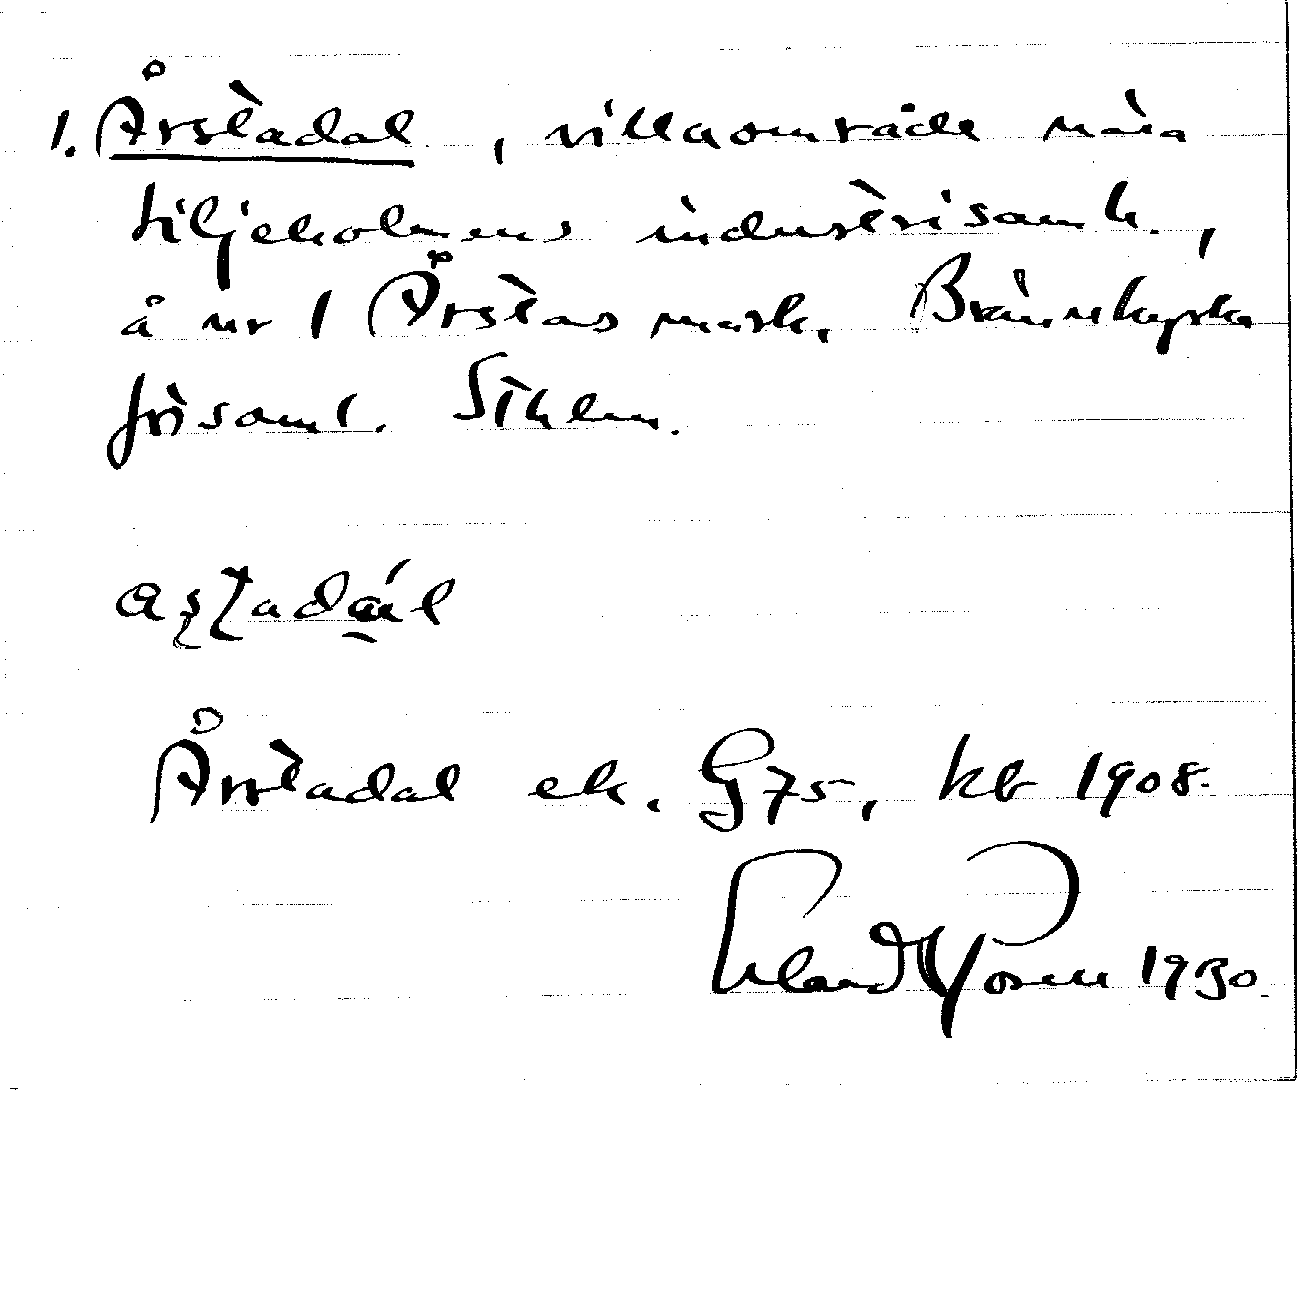 1. Årstadal, villaområde nära
Liljeholmens industrisamh.,
å nr 1 Årstas mark, Brännkyrka
församl. Sthlm.
Årstadal ek. G75, kb 1908.
Erland Rosell 1930.